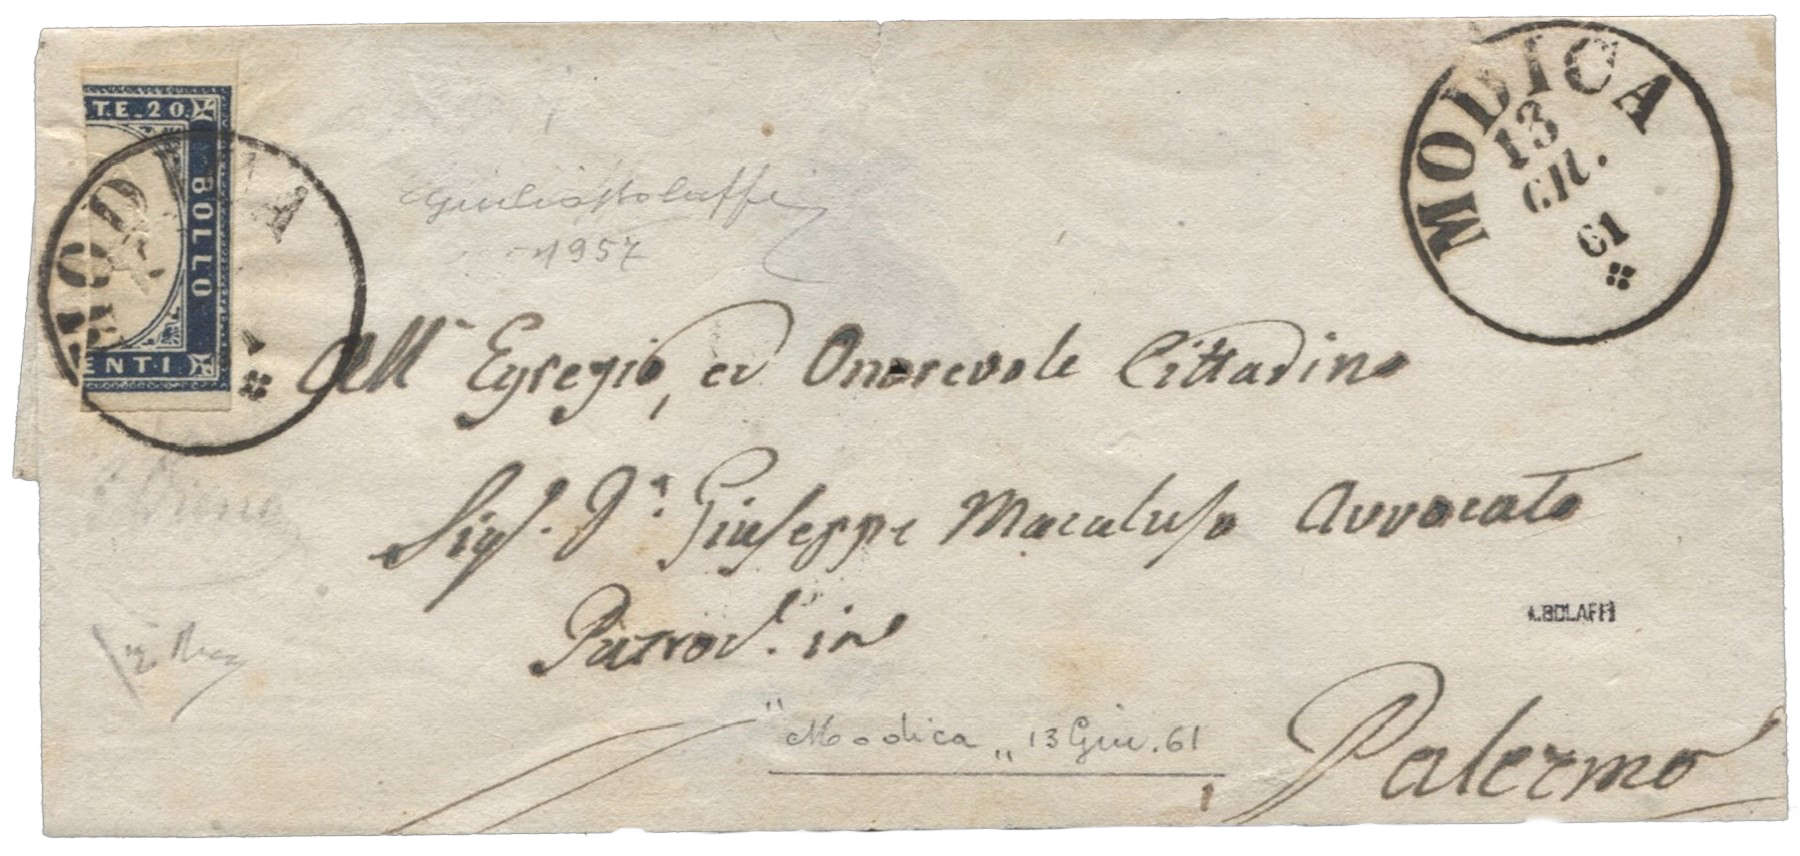 T.E. 20.
BOLLO
ENTI
MOD A
MODICA
13
GIU.
61
Giulio Bolaffi
1957
All' Egregio, ed Onorevole Cittadino
Sig.r D.n Giuseppe Macaluso Avvocato
Patroc.e in
Palermo
A.BOLAFFI
"Modica„ 13 Giu. 61